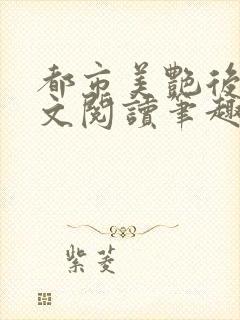 都市美艷後
文閱讀筆趣
紫菱